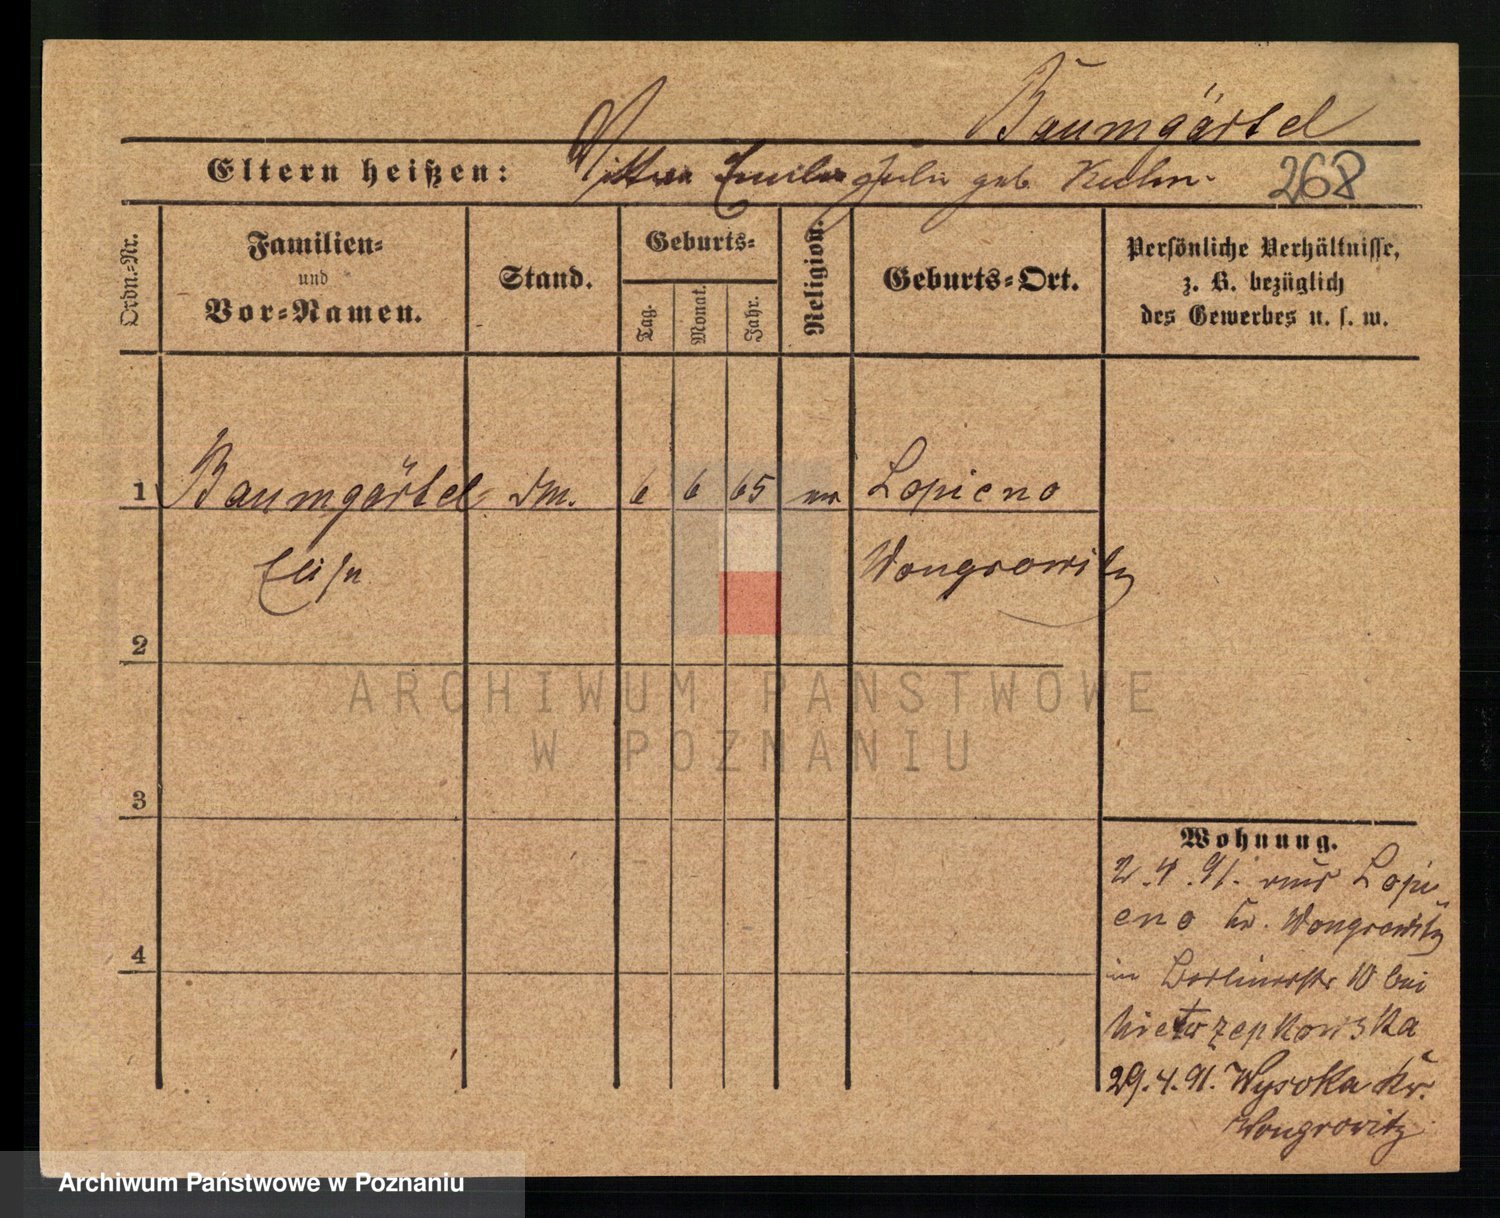 Baumgärtel
Eltern heißen: Emilie Julie geb. Kuhn.
268
Ordn.-Nr.
Familien-
und
Vor-Namen.
Stand.
Geburts-
Tag.
Monat.
Jahr.
Religion.
Geburts-Ort.
Persönliche Verhältnisse,
z. B. bezüglich
des Gewerbes u. s. w.
1 Baumgärtel 6 6 65 Lopieno
Elise Wongrowitz
2
ARCHIWUM PAŃSTWOWE
W POZNANIU
3
Wohnung.
2.4.91. aus Lopi-
eno Kr. Wongrowitz
4
in Berlinerstr 10 bei
29.4.91. Wysoka Kr.
Wongrowitz
Archiwum Państwowe w Poznaniu